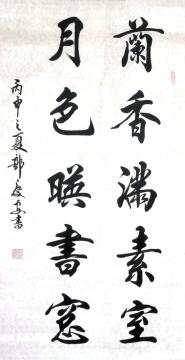 蘭香滿素室
月色暎書窓
丙申之夏郭慶
書